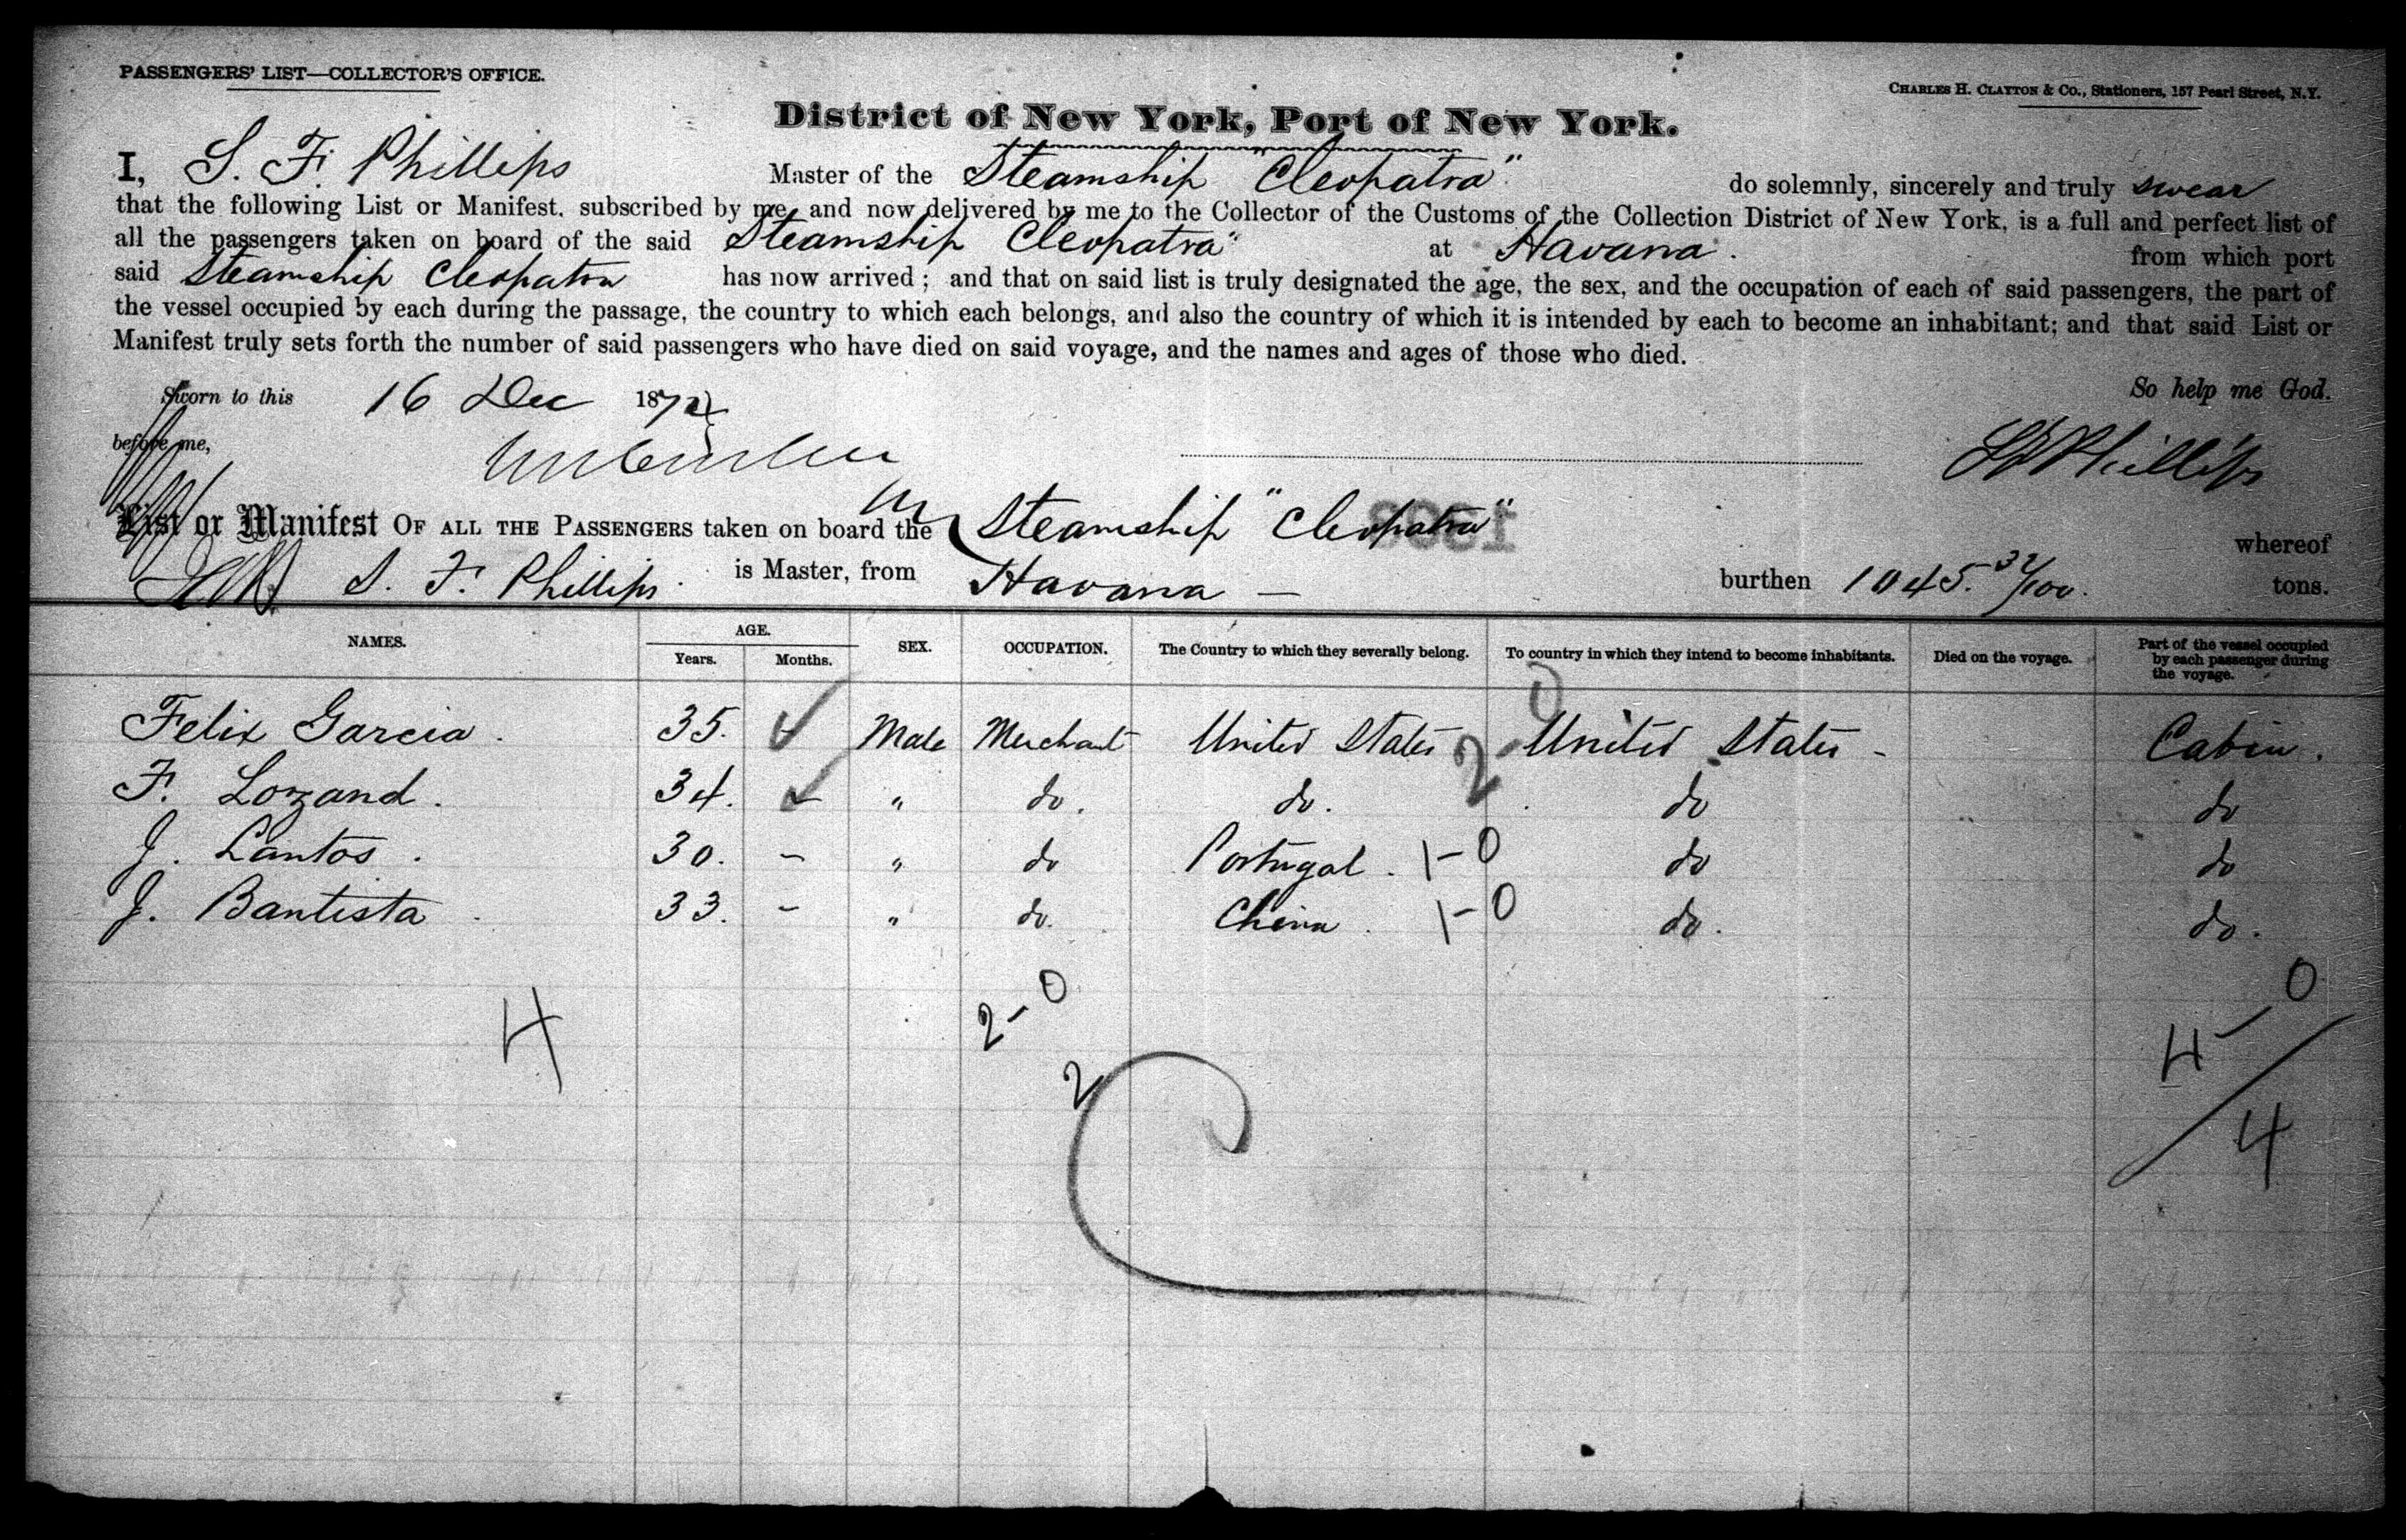 PASSENGERS' LIST—COLLECTOR'S OFFICE.
CHARLES H. CLAYTON & CO., Stationers, 157 Pearl Street, N.Y.
District of New York, Port of New York.
I, S. F. Phillips Master of the Steamship "Cleopatra" do solemnly, sincerely and truly swear
that the following List or Manifest, subscribed by me, and now delivered by me to the Collector of the Customs of the Collection District of New York, is a full and perfect list of
all the passengers taken on board of the said Steamship Cleopatra" at Havana. from which port
said Steamship Cleopatra has now arrived; and that on said list is truly designated the age, the sex, and the occupation of each of said passengers, the part of
the vessel occupied by each during the passage, the country to which each belongs, and also the country of which it is intended by each to become an inhabitant; and that said List or
Manifest truly sets forth the number of said passengers who have died on said voyage, and the names and ages of those who died.
Sworn to this 16 Dec 187
So help me God.
before me,
S F Phillips
List or Manifest OF ALL THE PASSENGERS taken on board the Steamship "Cleopatra" whereof
S. F. Phillips. is Master, from Havana — burthen 1045. 32/100. tons.
NAMES. AGE. Years. Months. SEX. OCCUPATION. The Country to which they severally belong. To country in which they intend to become inhabitants. Died on the voyage. Part of the vessel occupied by each passenger during the voyage.
0
Felix Garcia. 35. - Male Merchant United States 2 - United States - Cabin.
F. Lozand. 34. - " do. do. do do
J. Santos. 30. - " do Portugal. 1-0 do do
J. Bantista. 33. - " do. China. 1-0 do. do.
4 2-0 4-0
2 4